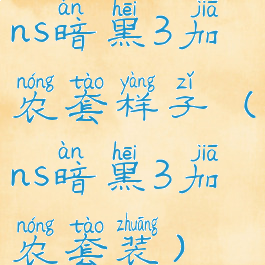 àn hēi jiā
ns暗黑3加
nóng tào yàng zǐ
农套样子（
àn hēi jiā
ns暗黑3加
nóng tào zhuāng
农套装）